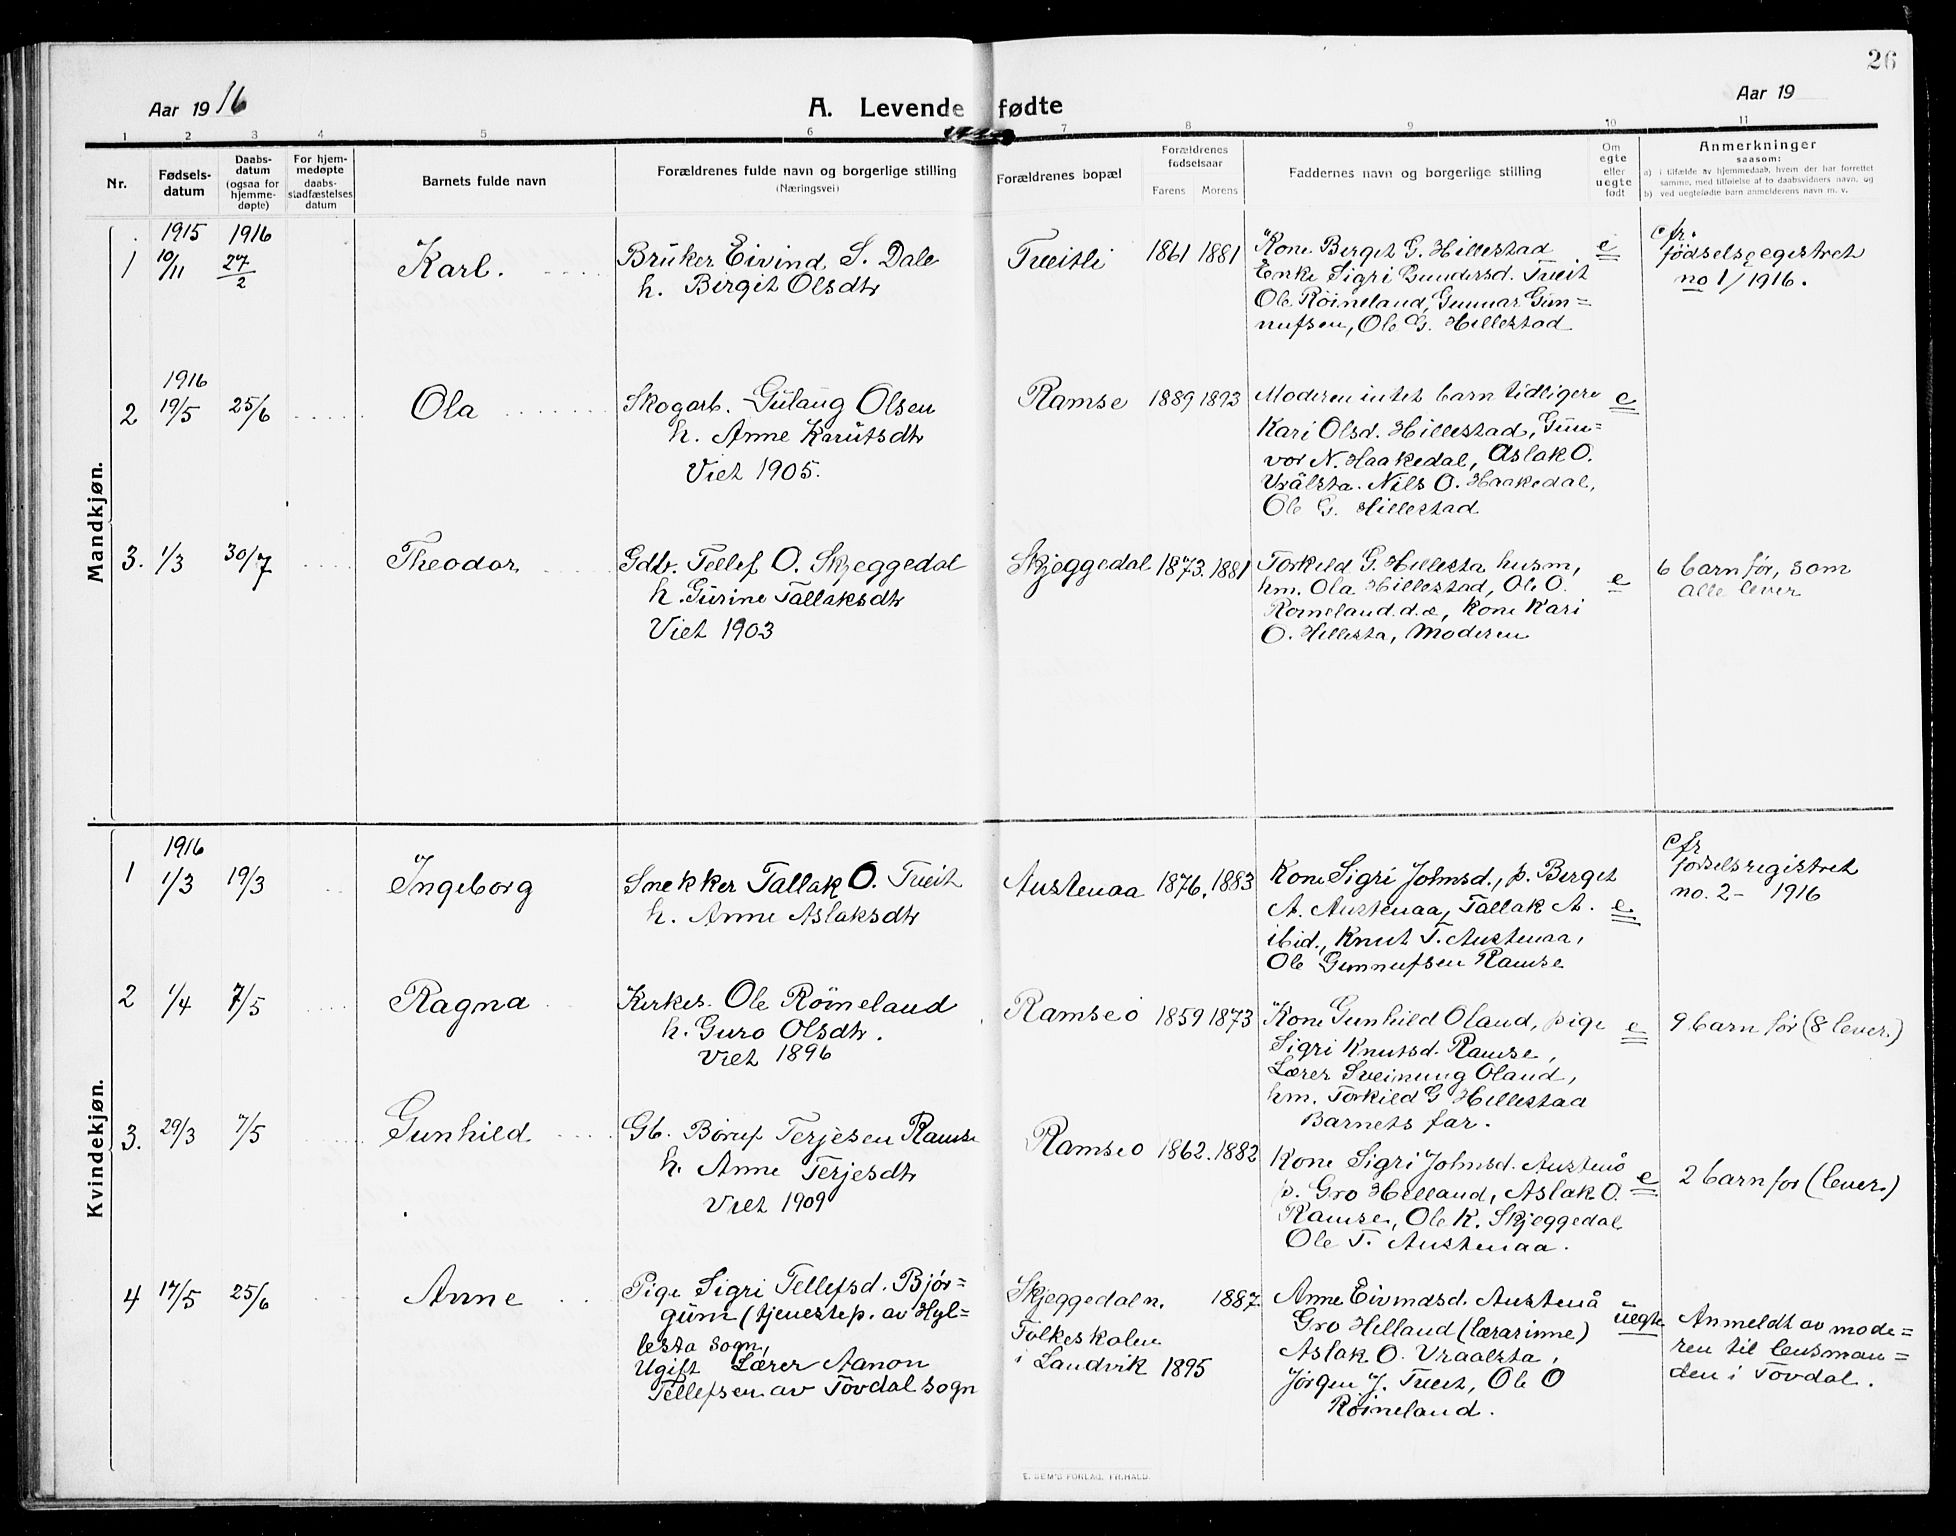 26
Aar 1916
A. Levende fødte
Aar 19
1 2 3 4 5 6 7 8 9 10 11
Nr.
Fødsels-
datum
Daabs-
datum
(ogsaa for
hjemme-
døpte)
For hjem-
medøpte
daabs-
stadfæstelses
datum
Barnets fulde navn
Forældrenes fulde navn og borgerlige stilling
(Næringsvei)
Forældrenes bopæl
Forældrenes
fødselsaar
Farens Morens
Faddernes navn og borgerlige stilling
Om
egte
eller
uegte
født
Anmerkninger
saasom:
a) i tilfælde av hjemmedaab, hvem der har forrettet
samme, med tilføielse af to daabsvidners navn, og
b) ved uegtefødte barn anmelderens navn m. v.
Mandkjøn.
1915 1916
1 10/11 27/2
Karl.
Bruker Eivind S. Dale
h. Birgit Olsdtr
Tveitli
1861 1881
Kone Berget G. Hillestad
Enke Sigri Gundersd. Tveit
Ole Røineland, Gunnar Gun=
nufsen, Ole G. Hillestad
e
cfr.
fødselsregistret
no 1/1916.
1916
2 19/5 25/6
Ola
Skogarb. Gulaug Olsen
h. Anne Knutsdtr
Viet 1905.
Ramse
1889 1893
Moderen intet barn tidligere
Kari Olsd. Hillestad, Gun=
vor N. Haakedal, Aslak O.
Vrålsta. Nils O. Haakedal,
Ole G. Hillestad
e
3. 1/3 30/7
Theodor
Gdb. Tellef O. Skjeggedal
h. Gurine Tallaksdtr
Viet 1903
Skjeggedal
1873. 1881
Torkild G. Hillesta husm,
hm. Ola Hillestad, Ole O.
Roineland d.æ, kone Kari
O. Hillesta, Moderen
e
6 barn før, som
alle lever
Kvindekjøn.
1916
1 1/3 19/3
Ingeborg
Snekker Tallak O. Tveit
h. Anne Aslaksdtr
Austenaa
1876. 1883
Kone Sigri Johnsd., p. Berget
A. Austenaa, Tallak A.
ibid., Knut T. Austenaa,
Ole Gunnufsen Ramse
e
cfr
fødselsregistret
no. 2 - 1916
2 1/4 7/5
Ragna
Kirkes. Ole Røineland
h. Guro Olsdtr.
Viet 1896
Ramseo
1859 1873
Kone Gunhild Oland, pige
Sigri Knutsd. Ramse,
Lærer Sveinung Oland,
hm. Torkild G Hillestad
Barnets far.
e
9 barn før (8 lever.)
3. 29/3 7/5
Gunhild
Gb. Børuf Terjesen Ramse
h. Anne Terjesdtr
Viet 1909
Ramseo
1862. 1882
Kone Sigri Johnsd. Austenå
p. Gro Helland, Aslak O.
Ramse, Ole K. Skjeggedal
Ole T. Austenaa.
e
2 barn før (lever.)
4 17/5 25/6
Anne
Pige Sigri Tellefsd. Bjør=
gum (tjenestep. av Hyl=
lesta sogn,
Ugift Lærer Aanon
Tellefsen av Tovdal sogn
Skjeggedal n.
Folkeskolen
i Landvik
1887
1895
Anne Eivindsd. Austenå
Gro Hilland (lærarinne)
Aslak O. Vraalsta,
Jørgen J. Tveit, Ole O
Røineland.
uegte
Anmeldt av mode=
ren til lensman=
den i Tovdal.
E. SEM'S FORLAG, FR.HALD.